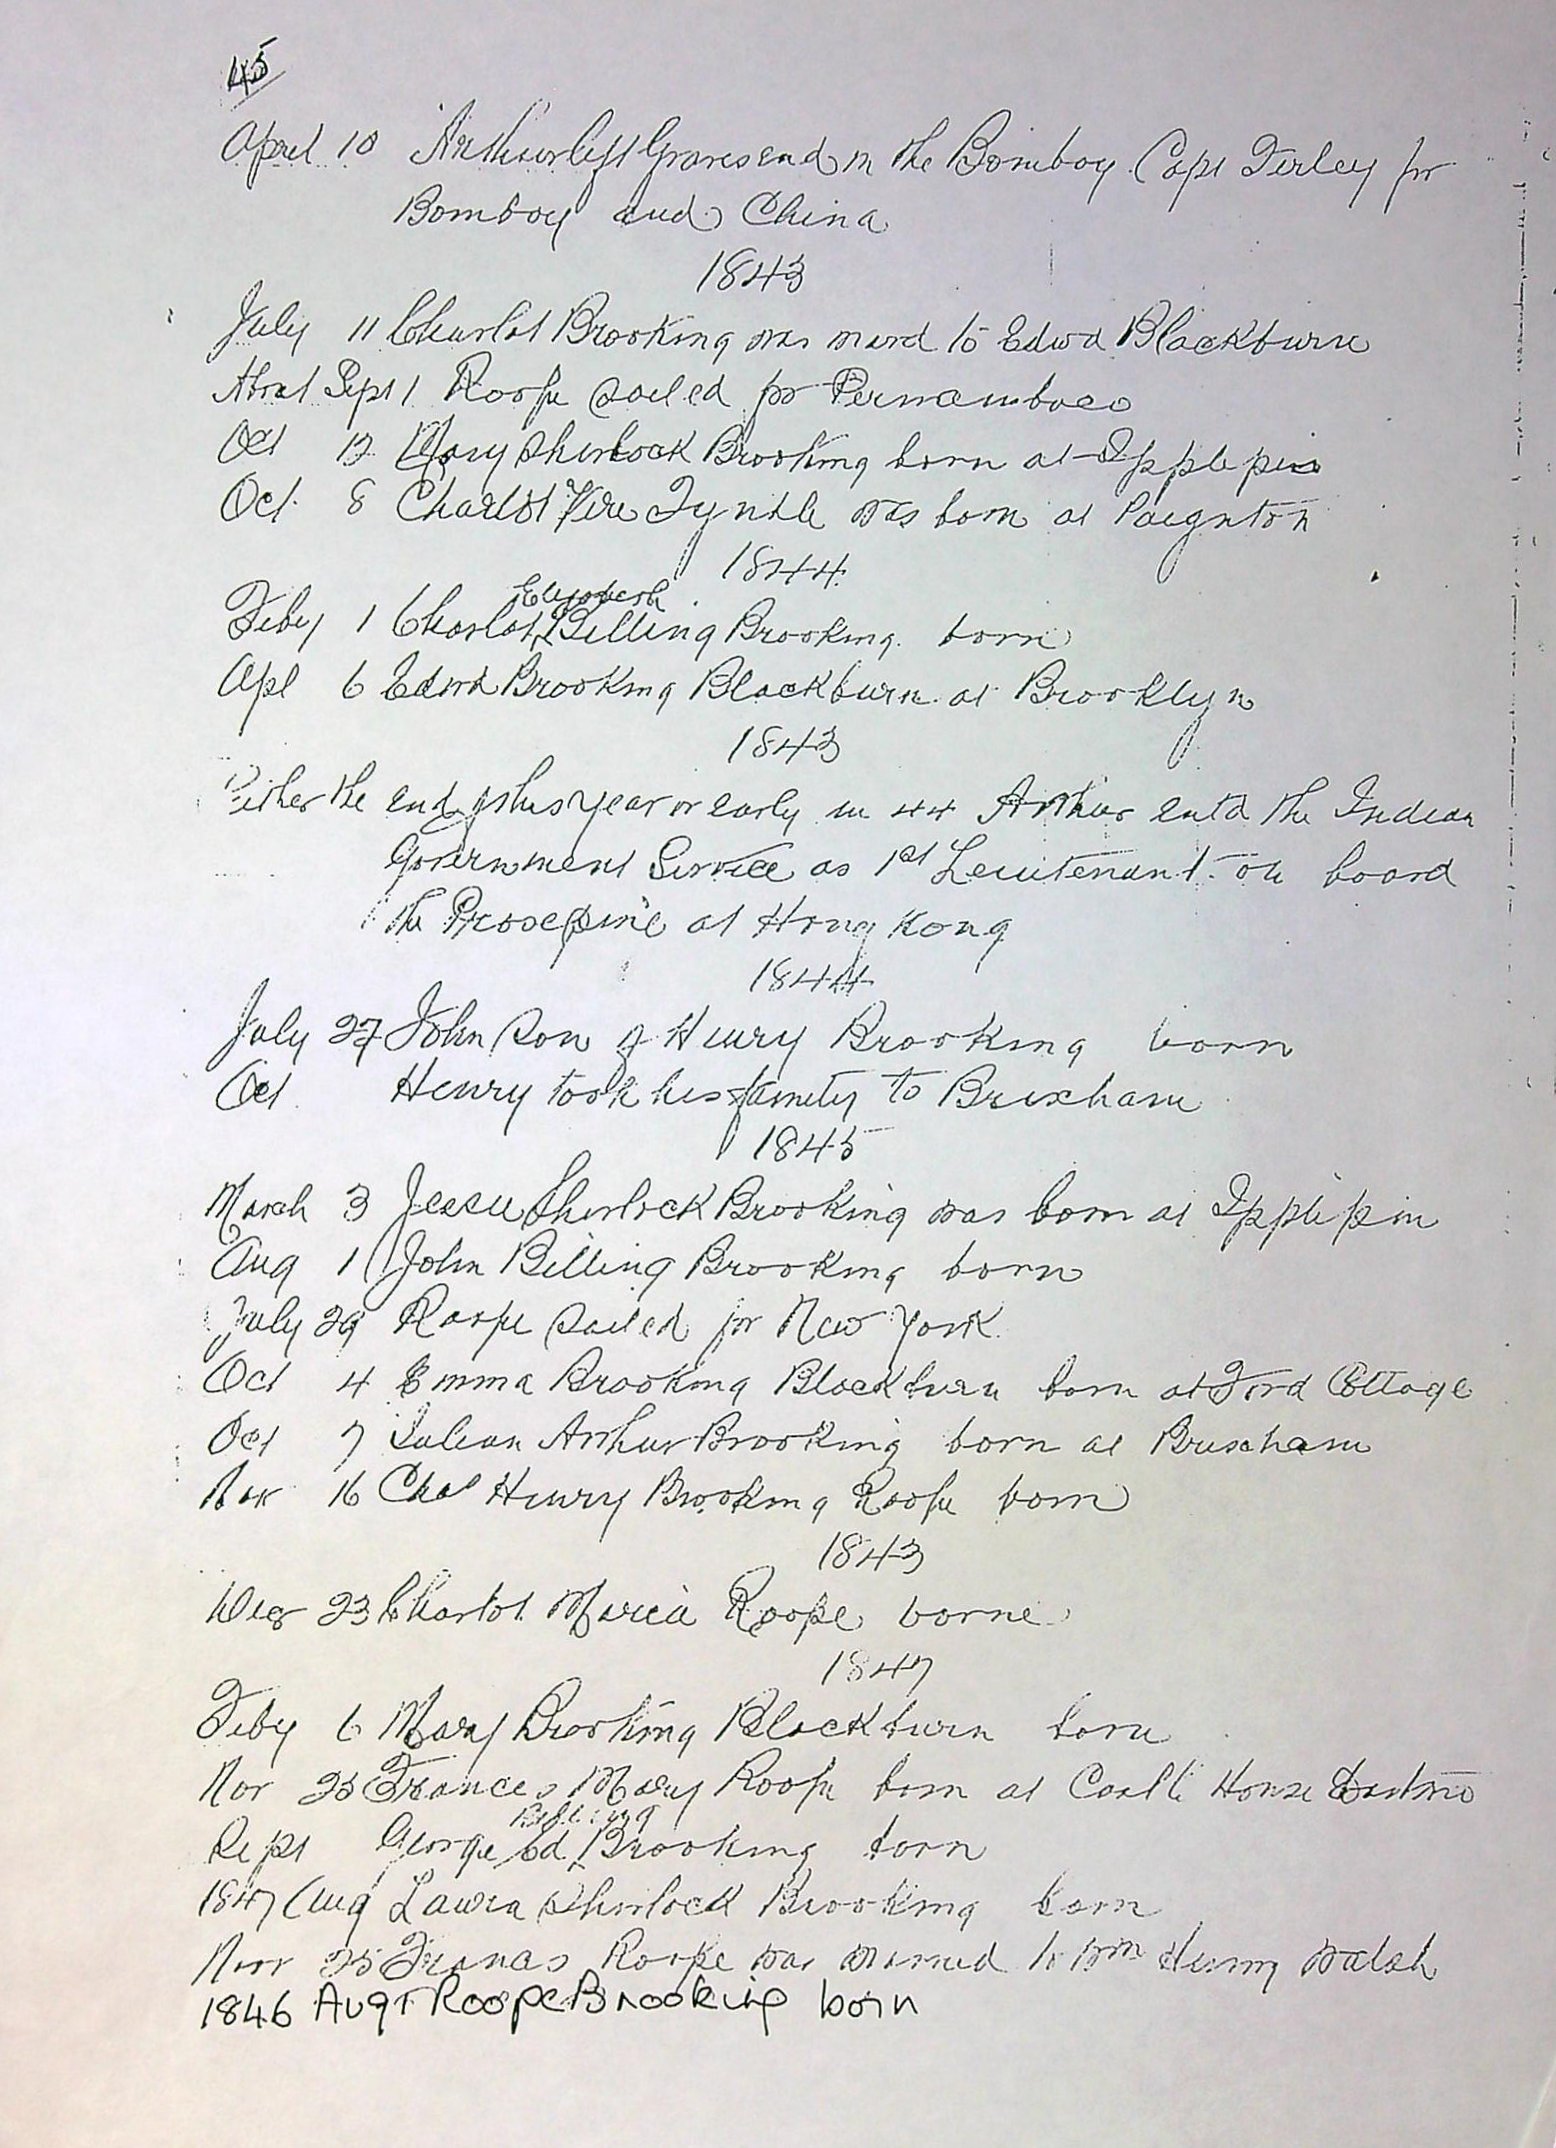 45
April 10 Arthur left Gravesend in the Bomboy Capt Ferley for
Bomboy and China
1843
July 11 Charlot Brooking was mard to Edwd Blackburn
Abrod Sept 1 Roope sailed for Pernambuco
Oct 12 Mary Sherlock Brooking born at Ipplepin
Oct 8 Charlot Vere Tyndle was born at Paignton
1844
Elizabeth
Feby 1 Charlot Billing Brooking born
Apl 6 Edwd Brooking Blackburn at Brooklyn
1843
Either the end of this year or early in 44 Arthur entd the Indian
Government Service as 1st Leuitenant on board
the Prosepine at Hong Kong
1844
July 27 John son of Henry Brooking born
Oct Henry took his family to Brixham
1845
March 3 Jessie Sherlock Brooking was born at Ipplepin
Aug 1 John Billing Brooking born
July 29 Roope sailed for New York
Oct 4 Emma Brooking Blackburn born at Ford Cottage
Oct 7 Julian Arthur Brooking born at Brixham
Nov 16 Chas Henry Brooking Roope born
1843
Dec 23 Charlot Maria Roope borne
1847
Feby 6 Mary Brooking Blackburn born
Nov 25 Frances Mary Roope born at Castle House
Billing
Sept George Ed Brooking born
1847 Aug Laura Sherlock Brooking born
Novr 25 Frances Roope was married to Wm Henry Walsh
1846 Augt Roope Brooking born